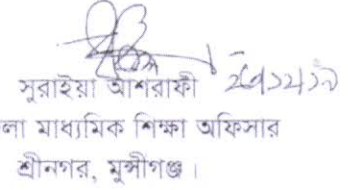 সুরাইয়া আশরাফী
লা মাধ্যমিক শিক্ষা অফিসার
শ্রীনগর, মুন্সীগঞ্জ।